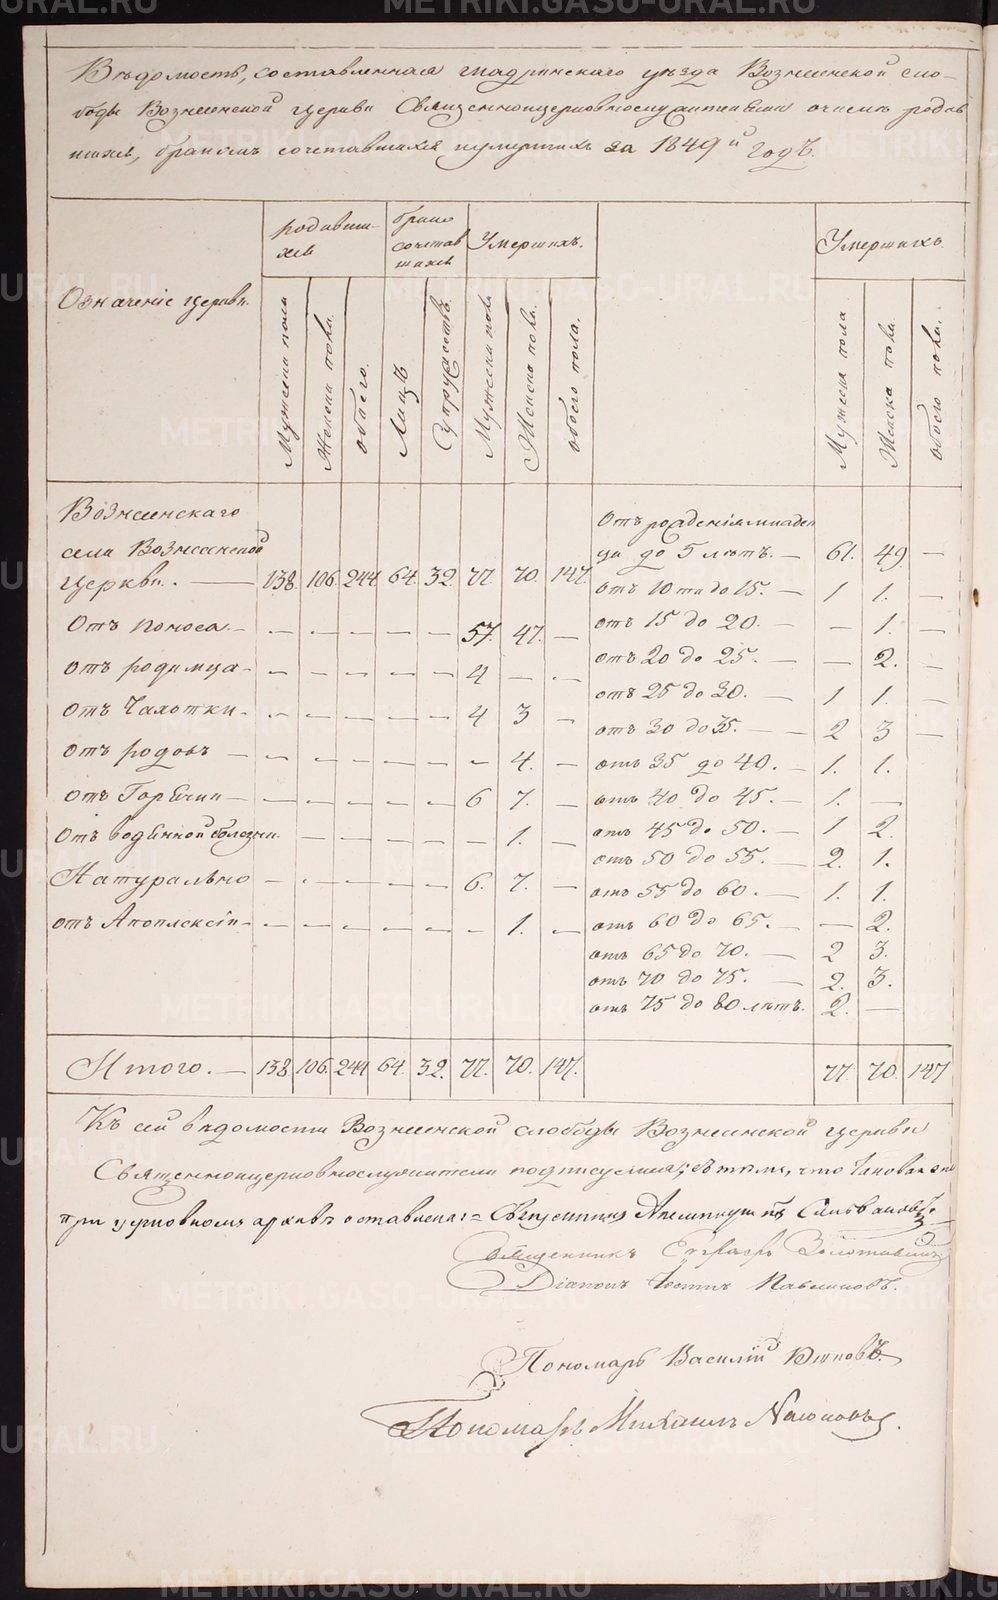 Вѣдомость, составленная Шадринскаго уѣзда Вознесенской сло-
боды Вознесенской церкви Священноцерковнослужителями о числѣ родив
шихся, бракомъ сочетавшихся и умершихъ за 1849й годъ.
Означеніе церкви.
родивши-
хся
брако
сочетав
шихся
Умершихъ.
Умершихъ
Мужеска пола
Женска пола.
обоего.
Лицъ
Супружествъ.
Мужеска пола
Женска пола.
обоего пола.
Мужеска пола
Женска пола
обоего пола.
Вознесенскаго
села Вознесенской
церкви. — 138. 106. 244 64. 32. 77 70. 147.
Отъ поноса. — — — — — — 57. 47. —
отъ родимца — — — — — — 4 — —
отъ Чахотки — — — — — — 4 3 —
отъ родовъ — — — — — — — 4. —
отъ Горячки — — — — — — 6 7. —
Отъ водяной болѣзни — — — — — 1. —
Натурально — — — — — — 6. 7. —
отъ Апоплексіи — — — — — — — 1. —
Отъ рожденія младен
ца до 5 лѣтъ. — 61. 49. —
отъ 10 ти до 15. — 1 1. —
отъ 15 до 20. — — 1. —
отъ 20 до 25. — — 2. —
отъ 25 до 30. — 1 1. —
отъ 30 до 35. — — 2 3 —
отъ 35 до 40. — 1. 1.
отъ 40 до 45. — 1. —
отъ 45 до 50. — 1 2.
отъ 50 до 55. — 2. 1.
отъ 55 до 60. — 1. 1.
отъ 60 до 65. — — 2.
отъ 65 до 70. — 2 3.
отъ 70 до 75. — 2. 3.
отъ 75 до 80 лѣтъ. 2. —
Итого. — 138 106. 244 64. 32. 77. 70. 147. 77. 70. 147
Къ сей вѣдомости Вознесенской слободы Вознесенской церкви
Священноцерковнослужители подписуемся; съ тѣмъ, что таковая
при церковномъ архивѣ оставлена:= Священникъ Сильвановъ
Священникъ Евграфъ Золотавинъ
Діаконъ Павлиновъ.
Пономарь Василій Юшковъ.
Пономарь Михаилъ
METRIKI.GASO-URAL.RU